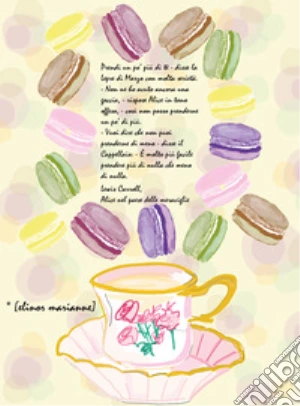 Prendi un po' più di tè - disse la
Lepre di Marzo con molta serietà.
- Non ne ho avuto ancora una
goccia, - rispose Alice in tono
offeso, - così non posso prenderne
un po' di più.
- Vuoi dire che non puoi
prenderne di meno - disse il
Cappellaio. - È molto più facile
prendere più di nulla che meno
di nulla.
Lewis Carroll,
Alice nel paese delle meraviglie
* [elinor marianne]